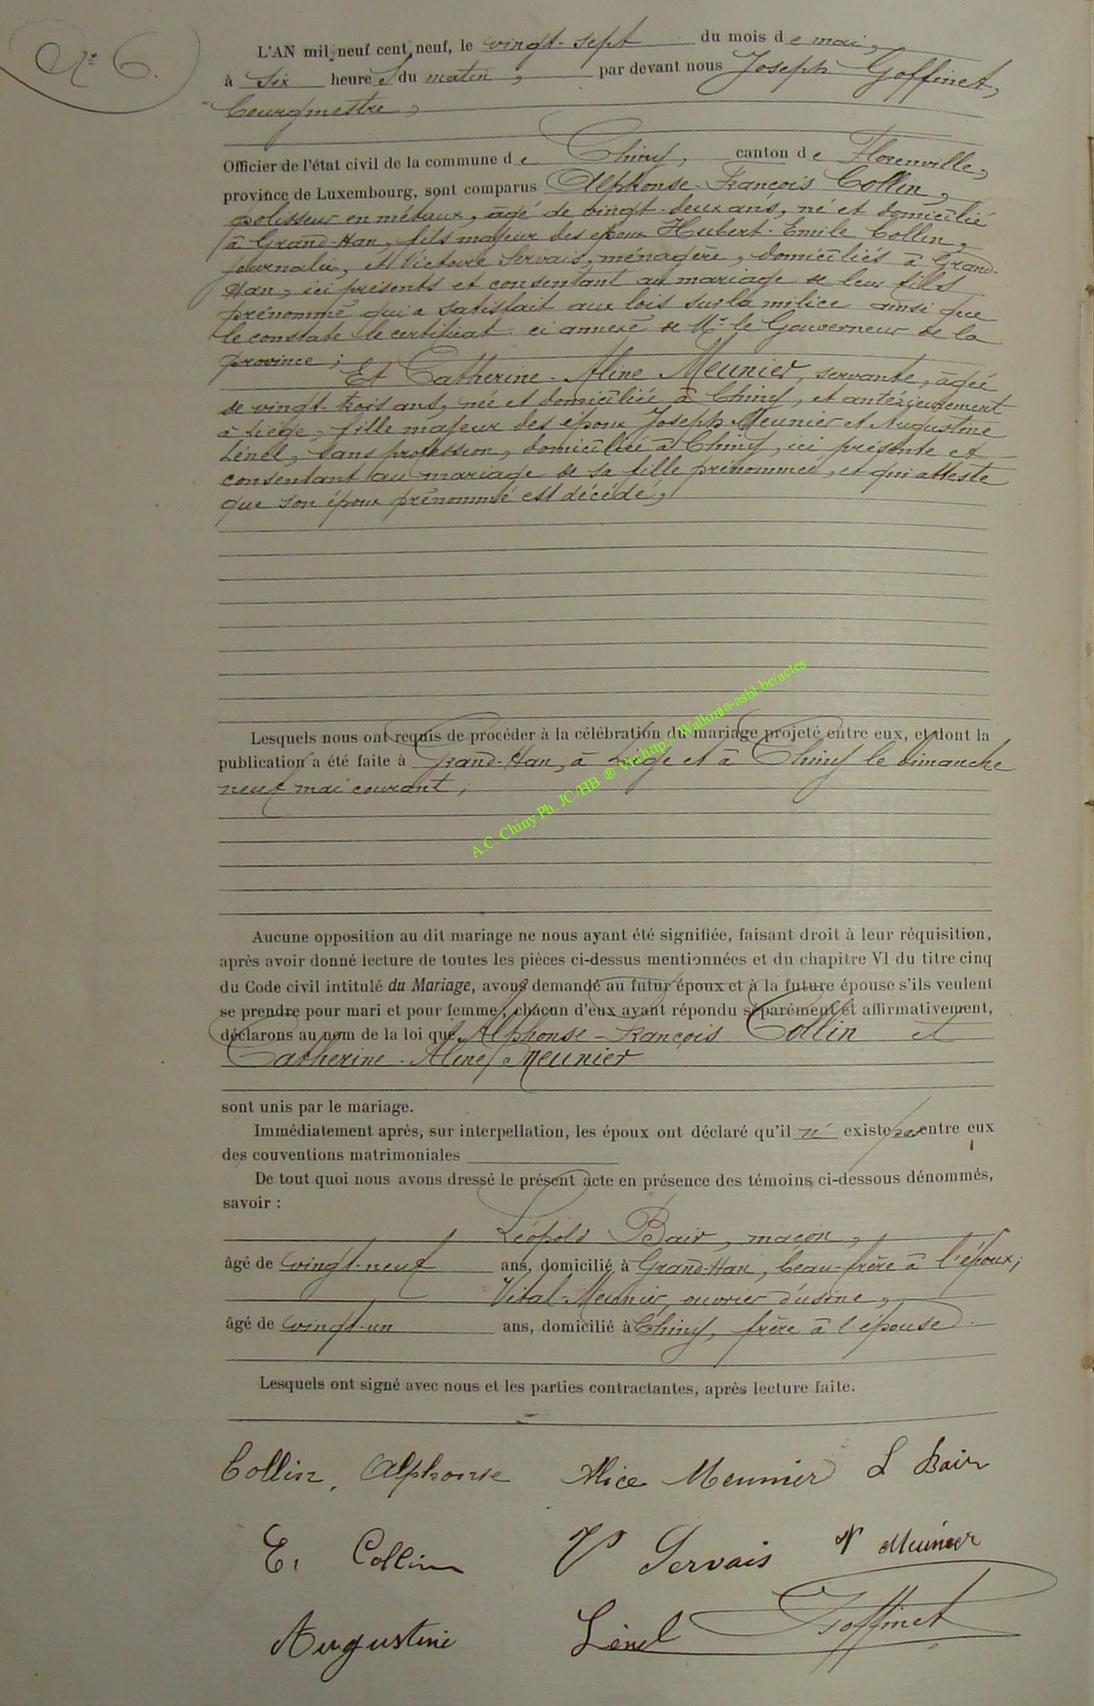 N° 6.
L'AN mil neuf cent neuf, le vingt-sept du mois de mai,
à six heures du matin, par devant nous Joseph Goffinet,
bourgmestre,
Officier de l'état civil de la commune de Chiny, canton de Florenville,
province de Luxembourg, sont comparus Alphonse-François Collin,
polisseur en métaux, âgé de vingt-deux ans, né et domicilié
à Grand-Han, fils majeur des époux Hubert-Emile Collin,
journalier, et Victoire Servais, ménagère, domiciliés à Grand-
Han, ici présents et consentant au mariage de leur fils
prénommé qui a satisfait aux lois sur la milice ainsi que
le constate le certificat ci annexé de Mr le Gouverneur de la
province;
Et Catherine-Aline Meunier, servante, âgée
de vingt-trois ans, née et domiciliée à Chiny, et antérieurement
à Liège, fille majeur des époux Joseph Meunier et Augustine
Lénel, sans profession, domiciliée à Chiny, ici présente et
consentant au mariage de sa fille prénommée, et qui atteste
que son époux prénommé est décédé,
Lesquels nous ont requis de procéder à la célébration du mariage projeté entre eux, et dont la
publication a été faite à Grand-Han, à Liège et à Chiny le dimanche
neuf mai courant;
A.C. Chiny Ph. JC/HB ® Via http://Wallonia-asbl.be/actes
Aucune opposition au dit mariage ne nous ayant été signifiée, faisant droit à leur réquisition,
après avoir donné lecture de toutes les pièces ci-dessus mentionnées et du chapitre VI du titre cinq
du Code civil intitulé du Mariage, avons demandé au futur époux et à la future épouse s'ils veulent
se prendre pour mari et pour femme, chacun d'eux ayant répondu séparément et affirmativement,
déclarons au nom de la loi que Alphonse-François Collin et
Catherine-Aline Meunier
sont unis par le mariage.
Immédiatement après, sur interpellation, les époux ont déclaré qu'il n' existe pas entre eux
des conventions matrimoniales
De tout quoi nous avons dressé le présent acte en présence des témoins ci-dessous dénommés,
savoir :
Léopold Bair, maçon,
âgé de vingt-neuf ans, domicilié à Grand-Han, beau-frère à l'époux;
Vital Meunier, ouvrier d'usine,
âgé de vingt-un ans, domicilié à Chiny, frère à l'épouse.
Lesquels ont signé avec nous et les parties contractantes, après lecture faite.
Collin, Alphonse Alice Meunier L Bair
E. Collin V Servais V Meunier
Augustine Lénel Goffinet